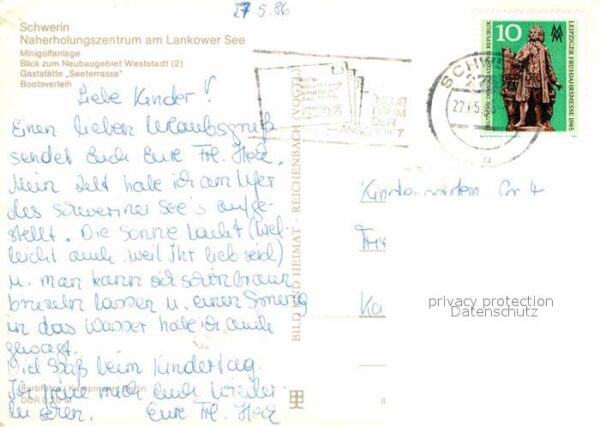 27.5.86
Schwerin
Naherholungszentrum am Lankower See
Minigolfanlage
Blick zum Neubaugebiet Weststadt (2)
Gaststätte „Seeterrasse"
Bootsverleih
Liebe Kinder!
Einen lieben Urlaubsgruß
sendet Euch Eure Frl.
Mein Zelt habe ich am Ufer
des Schweriner See's aufge-
stellt. Die Sonne lacht (viel-
leicht auch weil Ihr lieb seid)
u. man kann sich schön braun
brutzeln lassen u. einen Sprung
in das Wasser habe ich auch
gewagt.
Viel Spaß beim Kindertag.
Ich freue mich Euch wieder-
zu sehen. Eure Frl.
DDR
BILD UND HEIMAT · REICHENBACH (VOGTL
10
LEIPZIGER FRÜHJAHRSMESSE 1985
SCHWE
27.5.
NEUE
FORM
DER
ANSCHRIFT
Kindergarten Gr. 4
Ka
privacy protection
Datenschutz